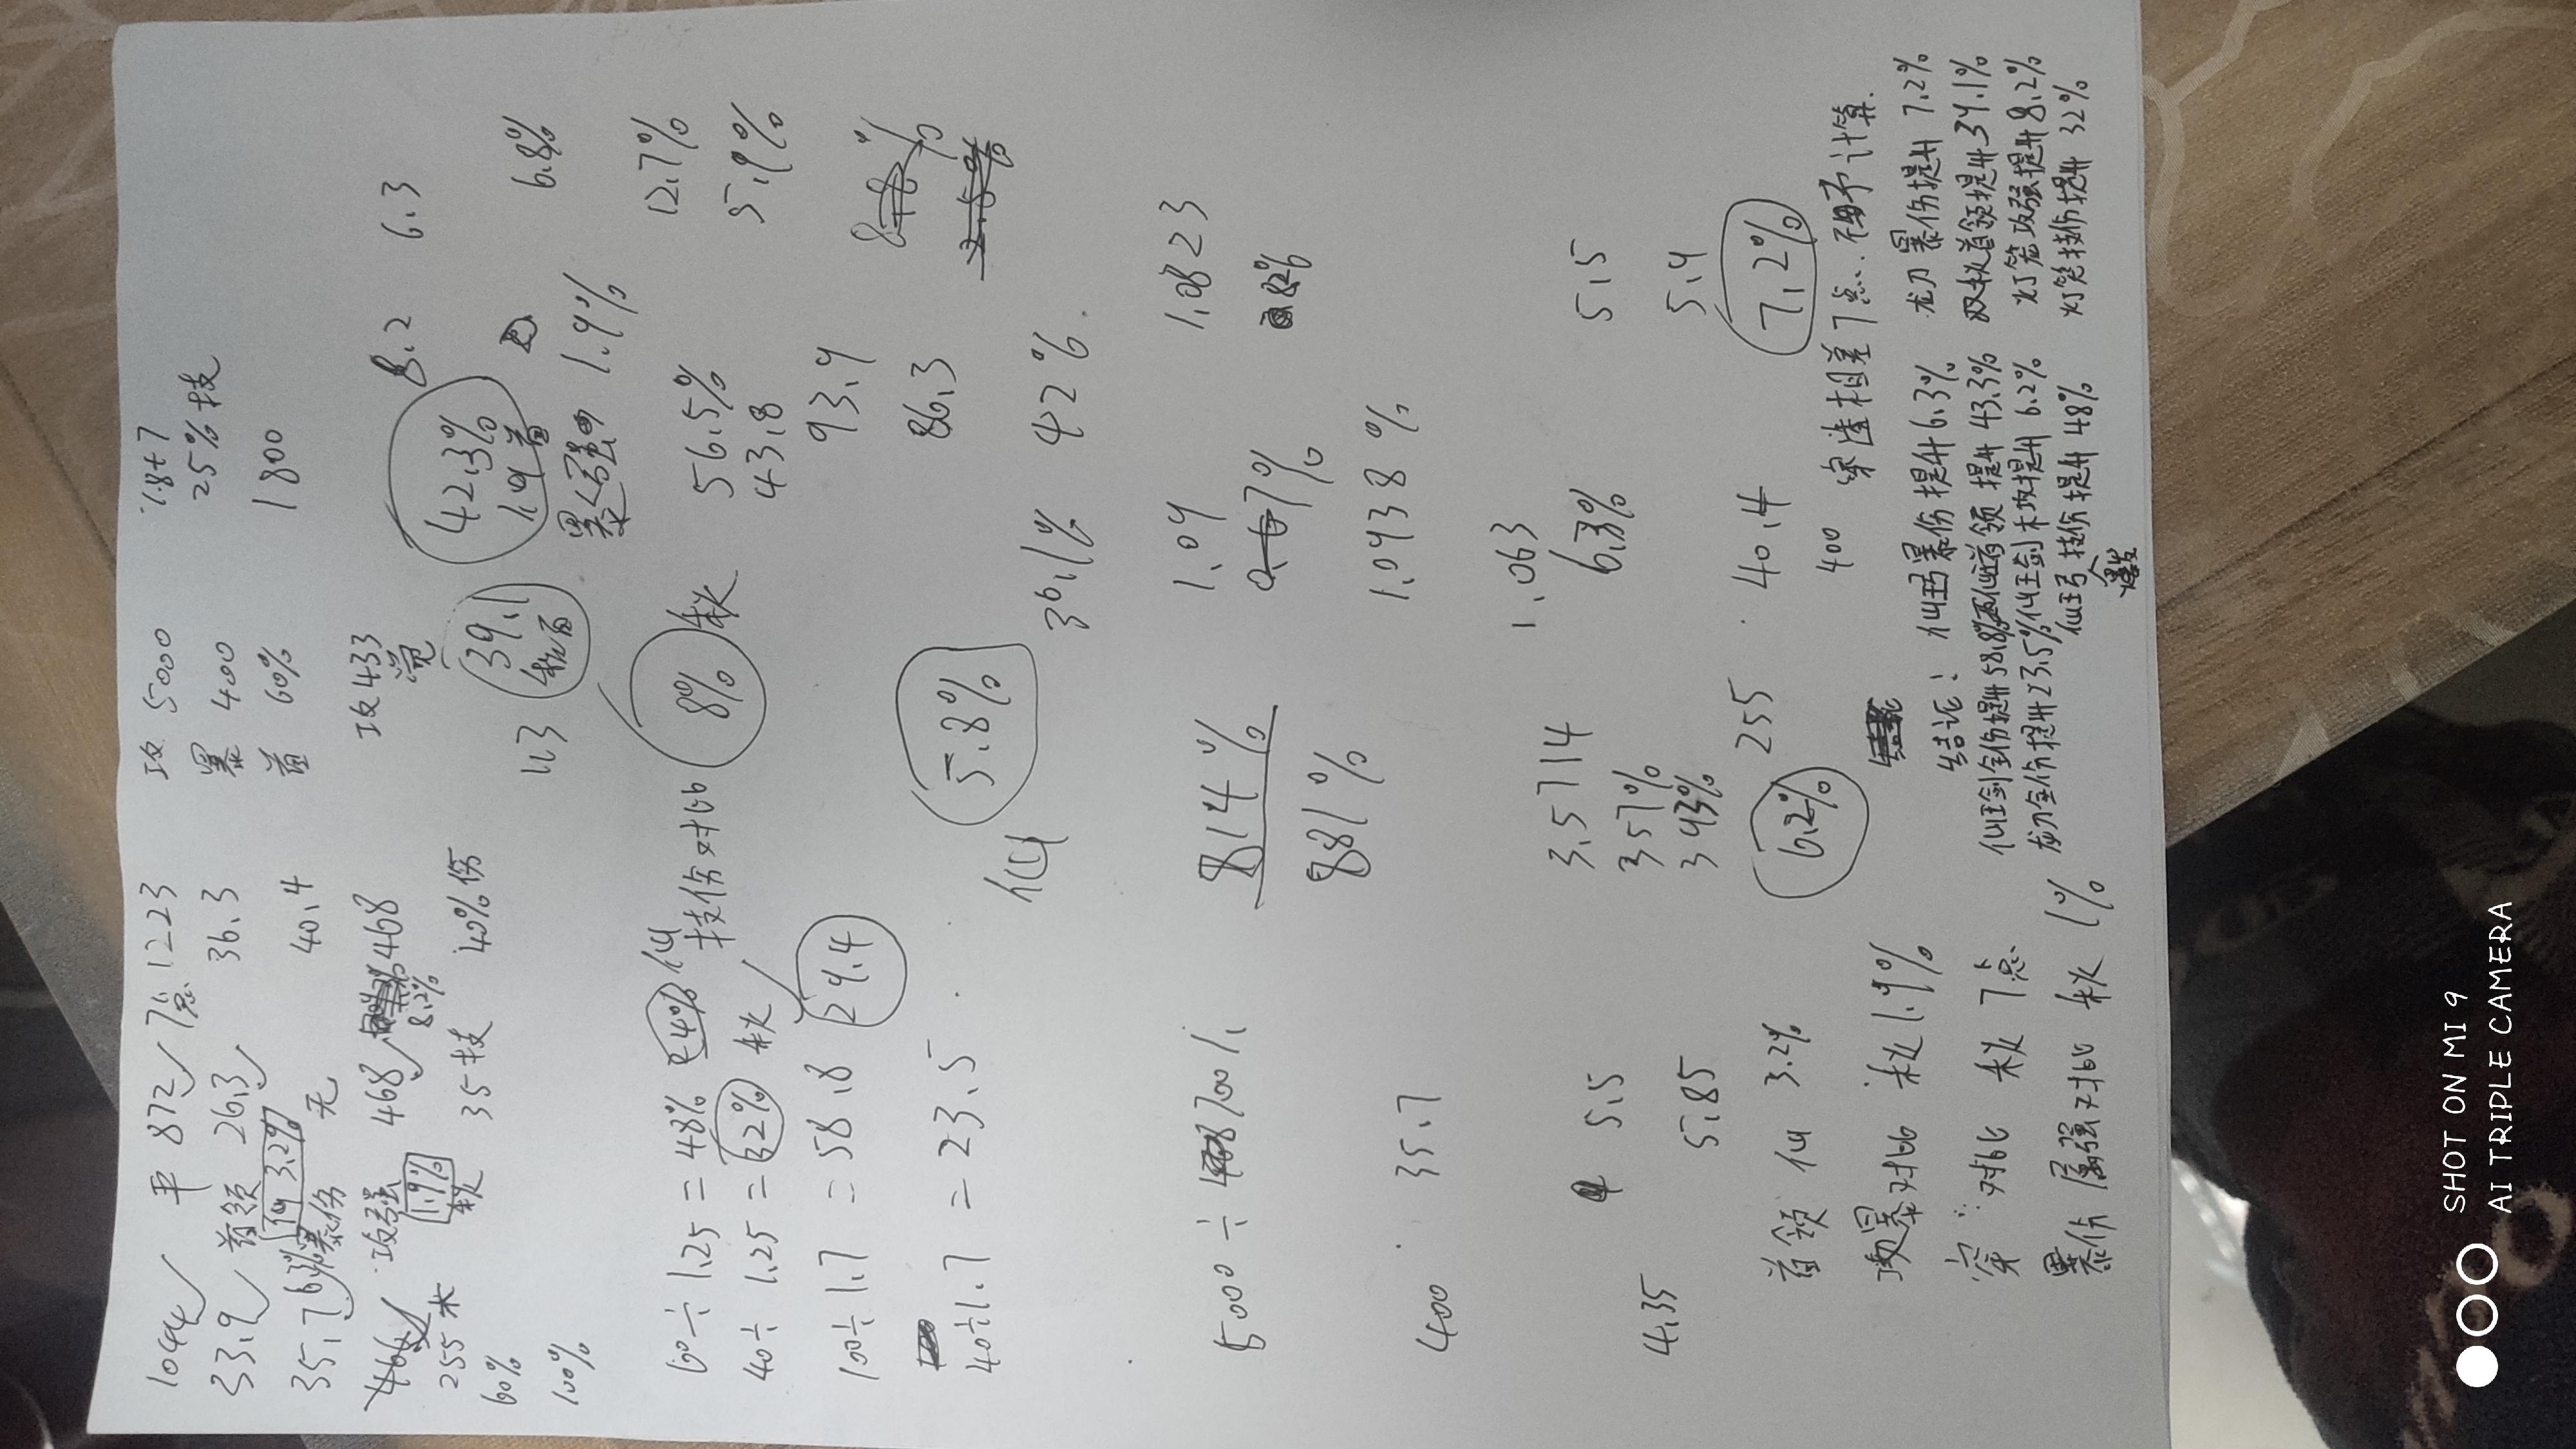 1044 平 872 7点 1223 攻 5000 1.8+7
33.9 首领 26.3 36.3 暴 400 25%技
仙 3.2% 首 60% 1800
35.7 6.3% 暴伤 无 40.4
466 攻强 468 468 攻433
255木 1.9% 8.2% 8.2 6.3
60% 35技 40%伤 39.1 42.3%
100% 113 1.9% 6.8%
60÷1.25=48% 仙
技伤对比 8% 56.5% 12.7%
40÷1.25=32% 43.8 5.9%
100÷1.7=58.8 24.4 93.4
40÷1.7=23.5 5.8% 86.3
仙 36.1% 42%
5000÷ 700% 814% 1.09 1.0823
8.2%
400 35.7 881% 1.0938%
5.5 3.5714 1.063 5.15
4.35 5.85 3.57% 6.3% 5.4
3.43%
首领 仙 3.2% 6.2% 255 40.4 7.2%
暴对比 1.9% 400 穿透相差7点.不予计算.
结论: 仙弓暴伤提升6.3% 龙刀暴伤提升7.2%
穿:对比 7点 仙王剑全伤提升58.8% 首领提升43.3% 首领提升39.1%
龙刀全伤提升23.5% 仙王剑木攻提升6.2% 灯笼攻强提升8.2%
暴伤属强对比 1% 仙王弓技伤提升48% 灯笼技伤提升32%
SHOT ON MI 9
AI TRIPLE CAMERA